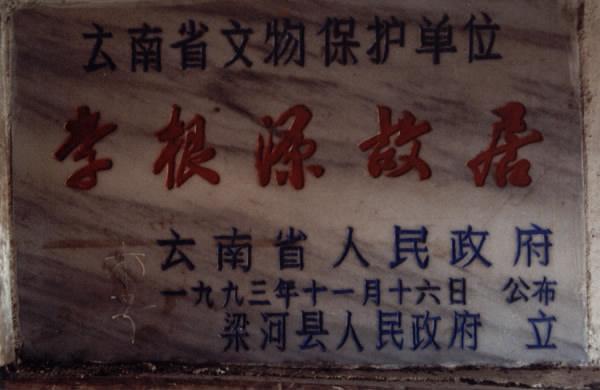 云南省文物保护单位
李根源故居
云南省人民政府
一九九三年十一月十六日 公布
梁河县人民政府 立